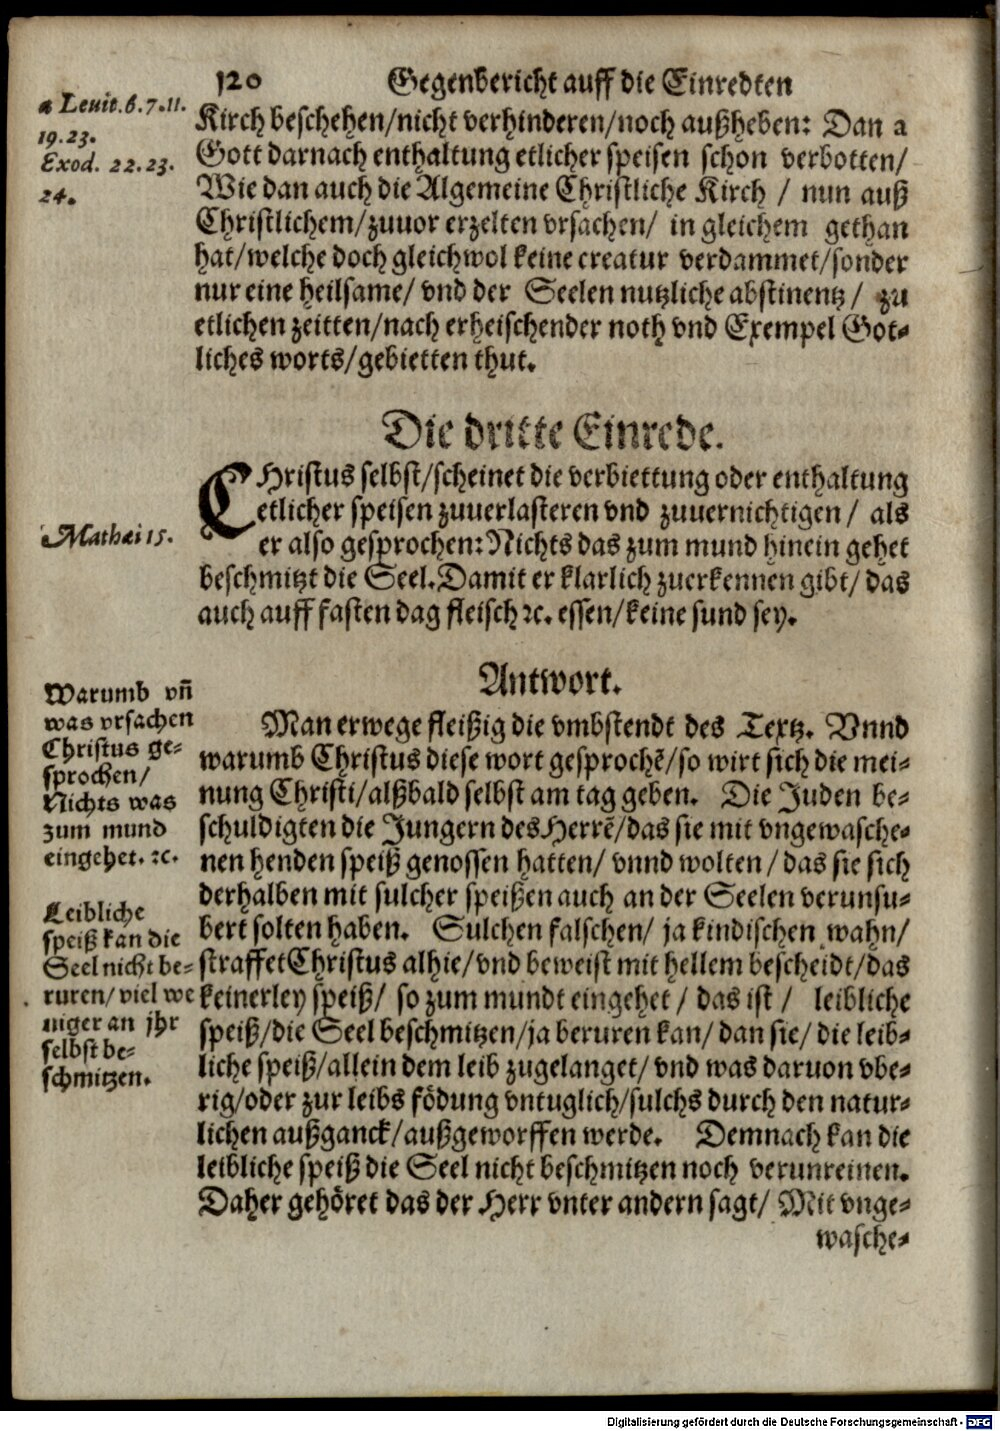 120 Gegenbericht auff die Einredten
a Leuit. 6. 7. 11.
19. 23.
Exod. 22. 23.
24.
Kirch beschehen/nicht verhinderen/noch außheben: Dan a
Gott darnach enthaltung etlicher speisen schon verbotten/
Wie dan auch die Algemeine Christliche Kirch / nun auß
Christlichem/zuuor erzelten vrsachen/ in gleichem gethan
hat/welche doch gleichwol keine creatur verdammet/sonder
nur eine heilsame/ vnd der Seelen nutzliche abstinentz/ zu
etlichen zeitten/nach erheischender noth vnd Exempel Got-
liches worts/gebietten thut.
Die dritte Einrede.
Mathæi 15.
CHristus selbst/scheinet die verbiettung oder enthaltung
etlicher speisen zuuerlasteren vnd zuuernichtigen/ als
er also gesprochen: Nichts das zum mund hinein gehet
beschmitzt die Seel. Damit er klarlich zuerkennen gibt/ das
auch auff fasten dag fleisch ꝛc. essen/keine sund sey.
Antwort.
Warumb vñ
was vrsachen
Christus ge-
sprochen/
Nichts was
zum mund
eingehet. ꝛc.
Leibliche
speiß kan die
Seel nicht be-
ruren/ viel we
niger an jhr
selbst be-
schmitzen.
Man erwege fleißig die vmbstendt des Textz. Vnnd
warumb Christus diese wort gesprochẽ/so wirt sich die mei-
nung Christi/alßbald selbst am tag geben. Die Juden be-
schuldigten die Jungern des Herrẽ/das sie mit vngewasche-
nen henden speiß genossen hatten/ vnnd wolten/ das sie sich
derhalben mit sulcher speißen auch an der Seelen verunsu-
bert solten haben. Sulchen falschen/ ja kindischen wahn/
straffet Christus alhie/vnd beweist mit hellem bescheidt/das
keinerley speiß/ so zum mundt eingehet/ das ist/ leibliche
speiß/die Seel beschmitzen/ja beruren kan/ dan sie/ die leib-
liche speiß/allein dem leib zugelanget/ vnd was daruon vbe-
rig/oder zur leibs födung vntuglich/sulchs durch den natur-
lichen außganck/außgeworffen werde. Demnach kan die
leibliche speiß die Seel nicht beschmitzen noch verunreinen.
Daher gehöret das der Herr vnter andern sagt/ Mit vnge-
wasche-
Digitalisierung gefördert durch die Deutsche Forschungsgemeinschaft - DFG